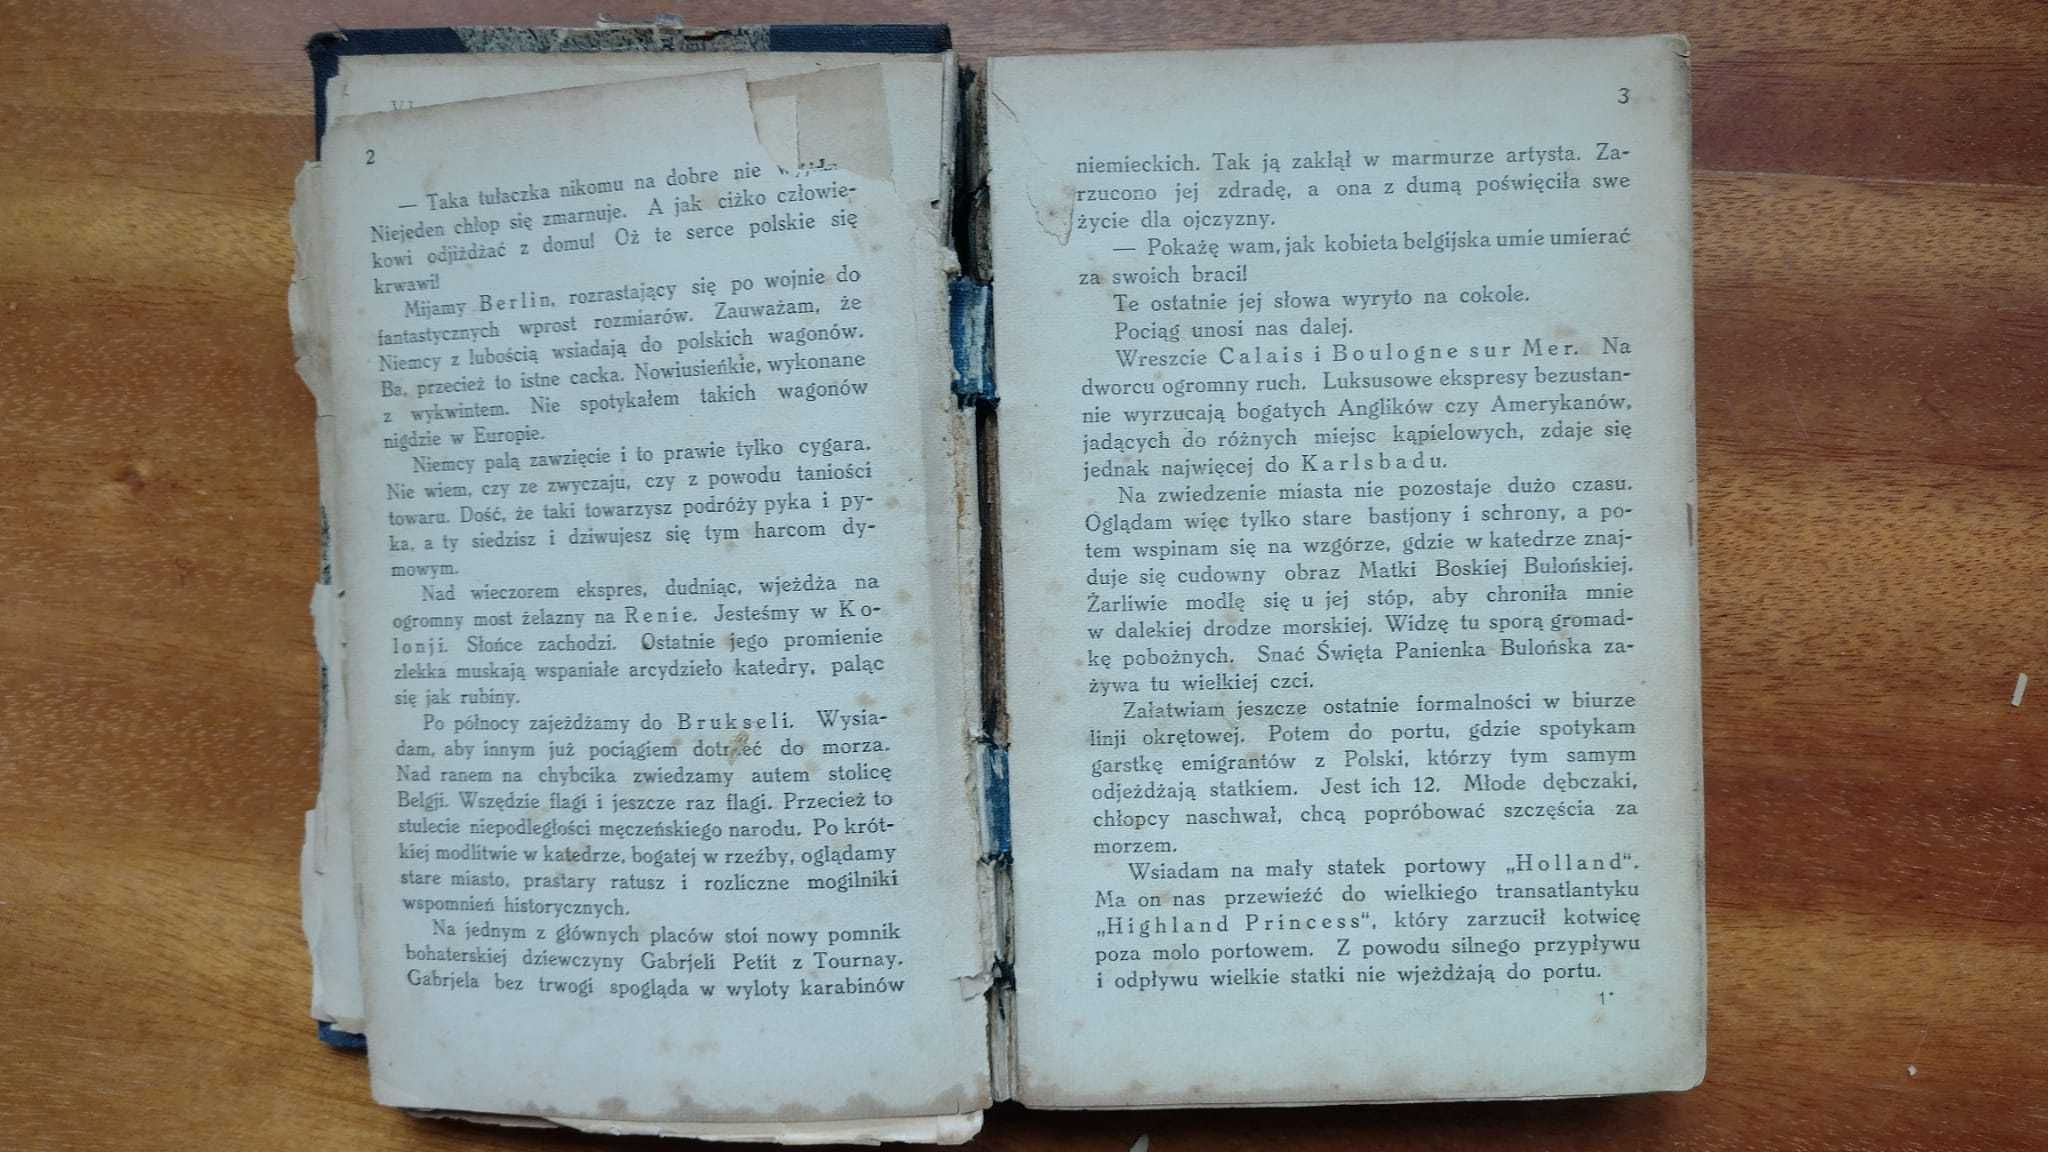 2
— Taka tułaczka nikomu na dobre nie
Niejeden chłop się zmarnuje. A jak ciżko człowie-
kowi odjiżdżać z domu! Oż te serce polskie się
krwawi!
Mijamy Berlin, rozrastający się po wojnie do
fantastycznych wprost rozmiarów. Zauważam, że
Niemcy z lubością wsiadają do polskich wagonów.
Ba, przecież to istne cacka. Nowiusieńkie, wykonane
z wykwintem. Nie spotykałem takich wagonów
nigdzie w Europie.
Niemcy palą zawzięcie i to prawie tylko cygara.
Nie wiem, czy ze zwyczaju, czy z powodu taniości
towaru. Dość, że taki towarzysz podróży pyka i py-
ka, a ty siedzisz i dziwujesz się tym harcom dy-
mowym.
Nad wieczorem ekspres, dudniąc, wjeżdża na
ogromny most żelazny na Renie. Jesteśmy w Ko-
lonji. Słońce zachodzi. Ostatnie jego promienie
zlekka muskają wspaniałe arcydzieło katedry, paląc
się jak rubiny.
Po północy zajeżdżamy do Brukseli. Wysia-
dam, aby innym już pociągiem dotrzeć do morza.
Nad ranem na chybcika zwiedzamy autem stolicę
Belgji. Wszędzie flagi i jeszcze raz flagi. Przecież to
stulecie niepodległości męczeńskiego narodu. Po krót-
kiej modlitwie w katedrze, bogatej w rzeźby, oglądamy
stare miasto, prastary ratusz i rozliczne mogilniki
wspomnień historycznych.
Na jednym z głównych placów stoi nowy pomnik
bohaterskiej dziewczyny Gabrjeli Petit z Tournay.
Gabrjela bez trwogi spogląda w wyloty karabinów
3
niemieckich. Tak ją zaklął w marmurze artysta. Za-
rzucono jej zdradę, a ona z dumą poświęciła swe
życie dla ojczyzny.
— Pokażę wam, jak kobieta belgijska umie umierać
za swoich braci!
Te ostatnie jej słowa wyryto na cokole.
Pociąg unosi nas dalej.
Wreszcie Calais i Boulogne sur Mer. Na
dworcu ogromny ruch. Luksusowe ekspresy bezustan-
nie wyrzucają bogatych Anglików czy Amerykanów,
jadących do różnych miejsc kąpielowych, zdaje się
jednak najwięcej do Karlsbadu.
Na zwiedzenie miasta nie pozostaje dużo czasu.
Oglądam więc tylko stare bastjony i schrony, a po-
tem wspinam się na wzgórze, gdzie w katedrze znaj-
duje się cudowny obraz Matki Boskiej Bulońskiej.
Żarliwie modlę się u jej stóp, aby chroniła mnie
w dalekiej drodze morskiej. Widzę tu sporą gromad-
kę pobożnych. Snać Święta Panienka Bulońska za-
żywa tu wielkiej czci.
Załatwiam jeszcze ostatnie formalności w biurze
linji okrętowej. Potem do portu, gdzie spotykam
garstkę emigrantów z Polski, którzy tym samym
odjeżdżają statkiem. Jest ich 12. Młode dębczaki,
chłopcy naschwał, chcą popróbować szczęścia za
morzem.
Wsiadam na mały statek portowy „Holland“.
Ma on nas przewieźć do wielkiego transatlantyku
„Highland Princess“, który zarzucił kotwicę
poza molo portowem. Z powodu silnego przypływu
i odpływu wielkie statki nie wjeżdżają do portu.
1*